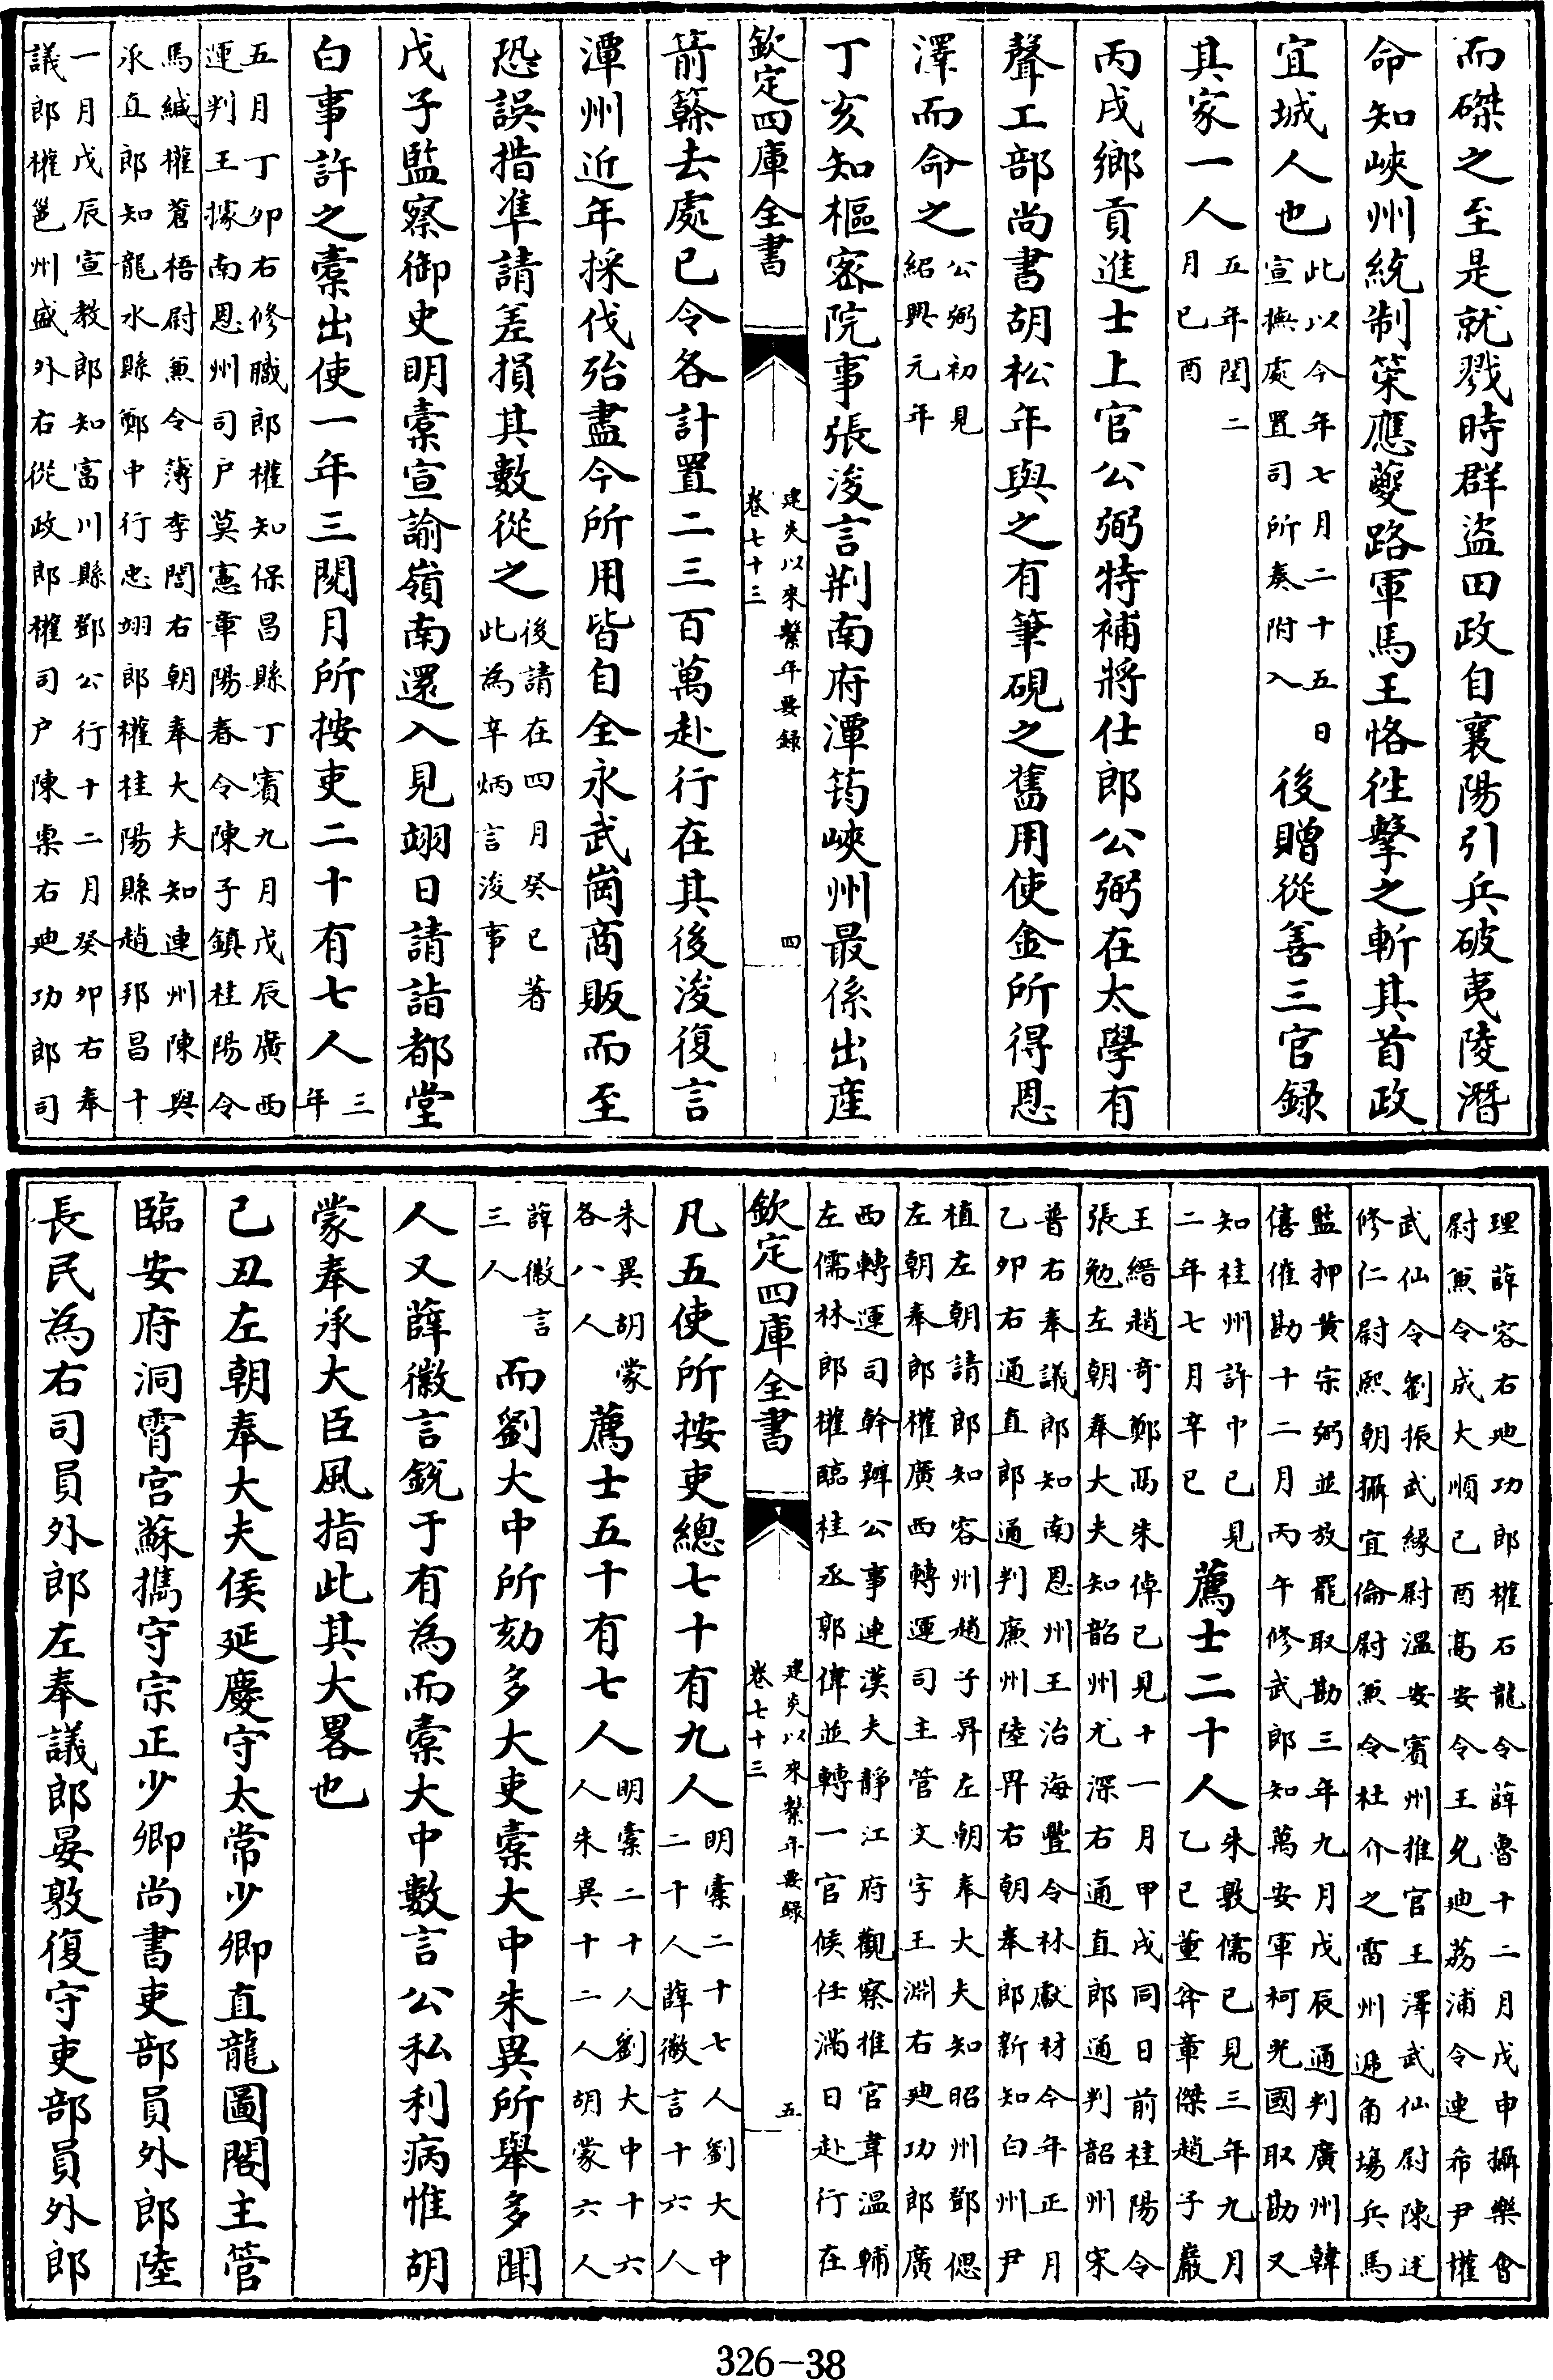 而磔之至是就戮時群盜田政自襄陽引兵破夷陵潛
命知峽州統制䇿應夔路軍馬王恪徃擊之斬其首政
宜城人也此以今年七月二十五日宣撫處置司所奏附入後贈從善三官録
其家一人五年閏二月己酉
丙戌鄉貢進士上官公弼特補將仕郎公弼在太學有
聲工部尚書胡松年與之有筆硯之舊用使金所得恩
澤而命之公弼初見紹興元年
丁亥知樞密院事張浚言荆南府潭筠峽州最係出産
欽定四庫全書
建炎以來繫年要録
卷七十三
四
箭簳去處已令各計置二三百萬赴行在其後浚復言
潭州近年採伐殆盡今所用皆自全永武崗商販而至
恐誤措準請差損其數從之後請在四月癸巳著此為辛炳言浚事
戊子監察御史明橐宣諭嶺南還入見翊日請詣都堂
白事許之橐出使一年三閱月所按吏二十有七人三年
五月丁卯右修職郎權知保昌縣丁賓九月戊辰廣西
運判王據南恩州司户莫憲章陽春令陳子鎮桂陽令
馬緘權蒼梧尉兼令簿李誾右朝奉大夫知連州陳與
承直郎知龍水縣鄭中行忠翊郎權桂陽縣趙邦昌十
一月戊辰宣教郎知富川縣鄧公行十二月癸卯右奉
議郎權邕州盛外右從政郎權司户陳㮚右廸功郎司
理薛容右廸功郎權石龍令薛魯十二月戊申攝樂會
尉兼令成大順己酉高安令王允廸荔浦令連希尹權
武仙令劉振武緣尉溫安賓州推官王澤武仙尉陳迋
修仁尉熙朝攝宜倫尉兼令杜介之雷州遞角場兵馬
監押黃宗弼並放罷取勘三年九月戊辰通判廣州韓
僖催勘十二月丙午修武郎知萬安軍柯光國取勘又
知桂州許中已見二年七月辛巳薦士二十人朱敦儒已見三年九月乙巳董弅章傑趙子巖
王縉趙竒鄭朱倬已見十一月甲戌同日前桂陽令
張勉左朝奉大夫知韶州尤深右通直郎通判韶州宋
普右奉議郎知南恩州王治海豐令林獻材今年正月
乙卯右通直郎通判廉州陸昇右朝奉郎新知白州尹
植左朝請郎知容州趙子昇左朝奉大夫知昭州鄧偲
左朝奉郎權廣西轉運司主管文字王淵右廸功郎廣
西轉運司幹辦公事連漢夫靜江府觀察推官韋溫輔
左儒林郎權臨桂丞郭偉並轉一官候任滿日赴行在
欽定四庫全書
建炎以來繫年要録
卷七十三
五
凡五使所按吏總七十有九人明橐二十七人劉大中二十人薛徽言十六人
朱異胡蒙各八人薦士五十有七人明橐二十人劉大中十六人朱異十二人胡蒙六人
薛徽言三人而劉大中所劾多大吏橐大中朱異所舉多聞
人又薛徽言銳于有為而橐大中數言公私利病惟胡
蒙奉承大臣風指此其大畧也
己丑左朝奉大夫侯延慶守太常少卿直龍圖閣主管
臨安府洞霄宫蘇攜守宗正少卿尚書吏部員外郎陸
長民為右司員外郎左奉議郎晏敦復守吏部員外郎
326-38